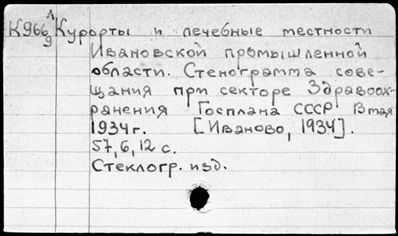 К966 Л/9 Курорты и лечебные местности
Ивановской промышленной
области. Стенограмма сове-
щания при секторе Здравоох-
ранения Госплана СССР 13 мая
1934 г. [Иваново, 1934].
57, 6, 12 с.
Стеклогр. изд.